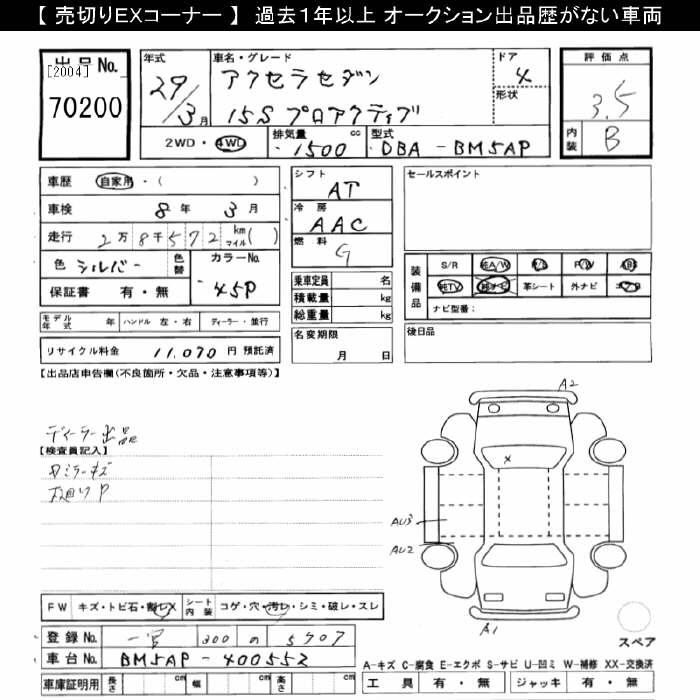 【 売切りEXコーナー 】 過去１年以上 オークション出品歴がない車両
出品No.
[2004]
70200
年式
29/3月
車名・グレード
アクセラセダン
15S プロアクティブ
ドア
4
形状
2WD・4WD
排気量 cc
1500
型式
DBA-BM5AP
評価点
3.5
内装
B
車歴 自家用・( )
車検 8年 3月
走行 2万8千572 km マイル( )
色 シルバー 色替
カラーNo.
45P
保証書 有・無
シフト
AT
冷房
AAC
燃料
G
乗車定員 名
積載量 kg
総重量 kg
セールスポイント
装備品
S/R 純A/W P/S P/W AB
純TV 純ナビ 革シート 外ナビ
ナビ型番：
モデル年式 年 ハンドル 左・右 ディーラー・並行
リサイクル料金 11,070 円 預託済
名変期限
月 日
後日品
【出品店申告欄(不良箇所・欠品・注意事項等)】
ディーラー出品
【検査員記入】
A2
AU3
AU2
A1
スペア
FW キズ・トビ石・割レX シート内装 コゲ・穴・汚レ・シミ・破レ・スレ
登録No. 一宮 300 の 5707
車台No. BM5AP-400552
車庫証明用 長さ cm 幅 cm 高さ cm
A-キズ C-腐食 E-エクボ S-サビ U-凹ミ W-補修 XX-交換済
工具 有・無 ジャッキ 有・無